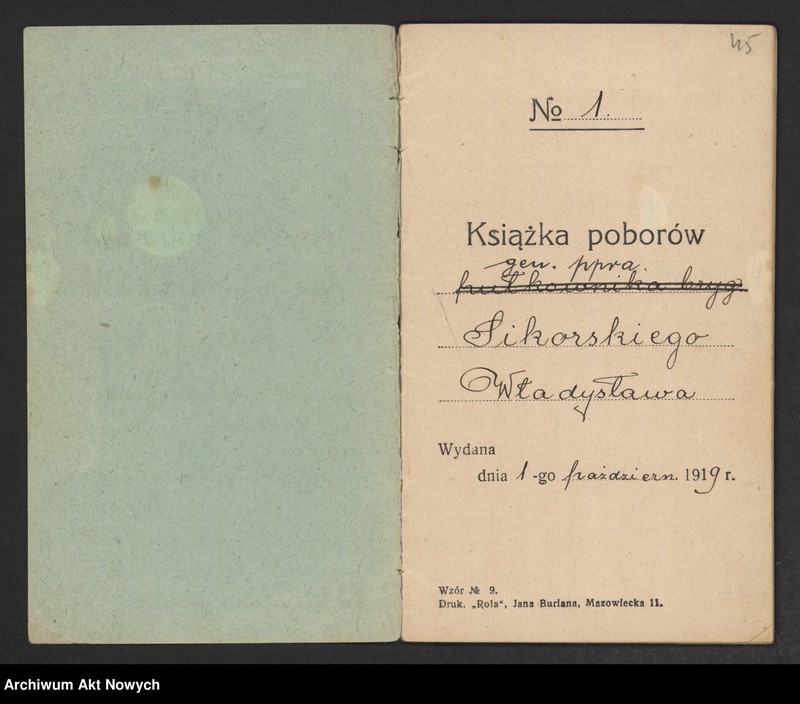 45
No 1.
Książka poborów
gen. ppra.
pułkownika bryg
Sikorskiego
Władysława
Wydana
dnia 1-go październ. 1919 r.
Wzór № 9.
Druk. „Rola“, Jana Buriana, Mazowiecka 11.
Archiwum Akt Nowych